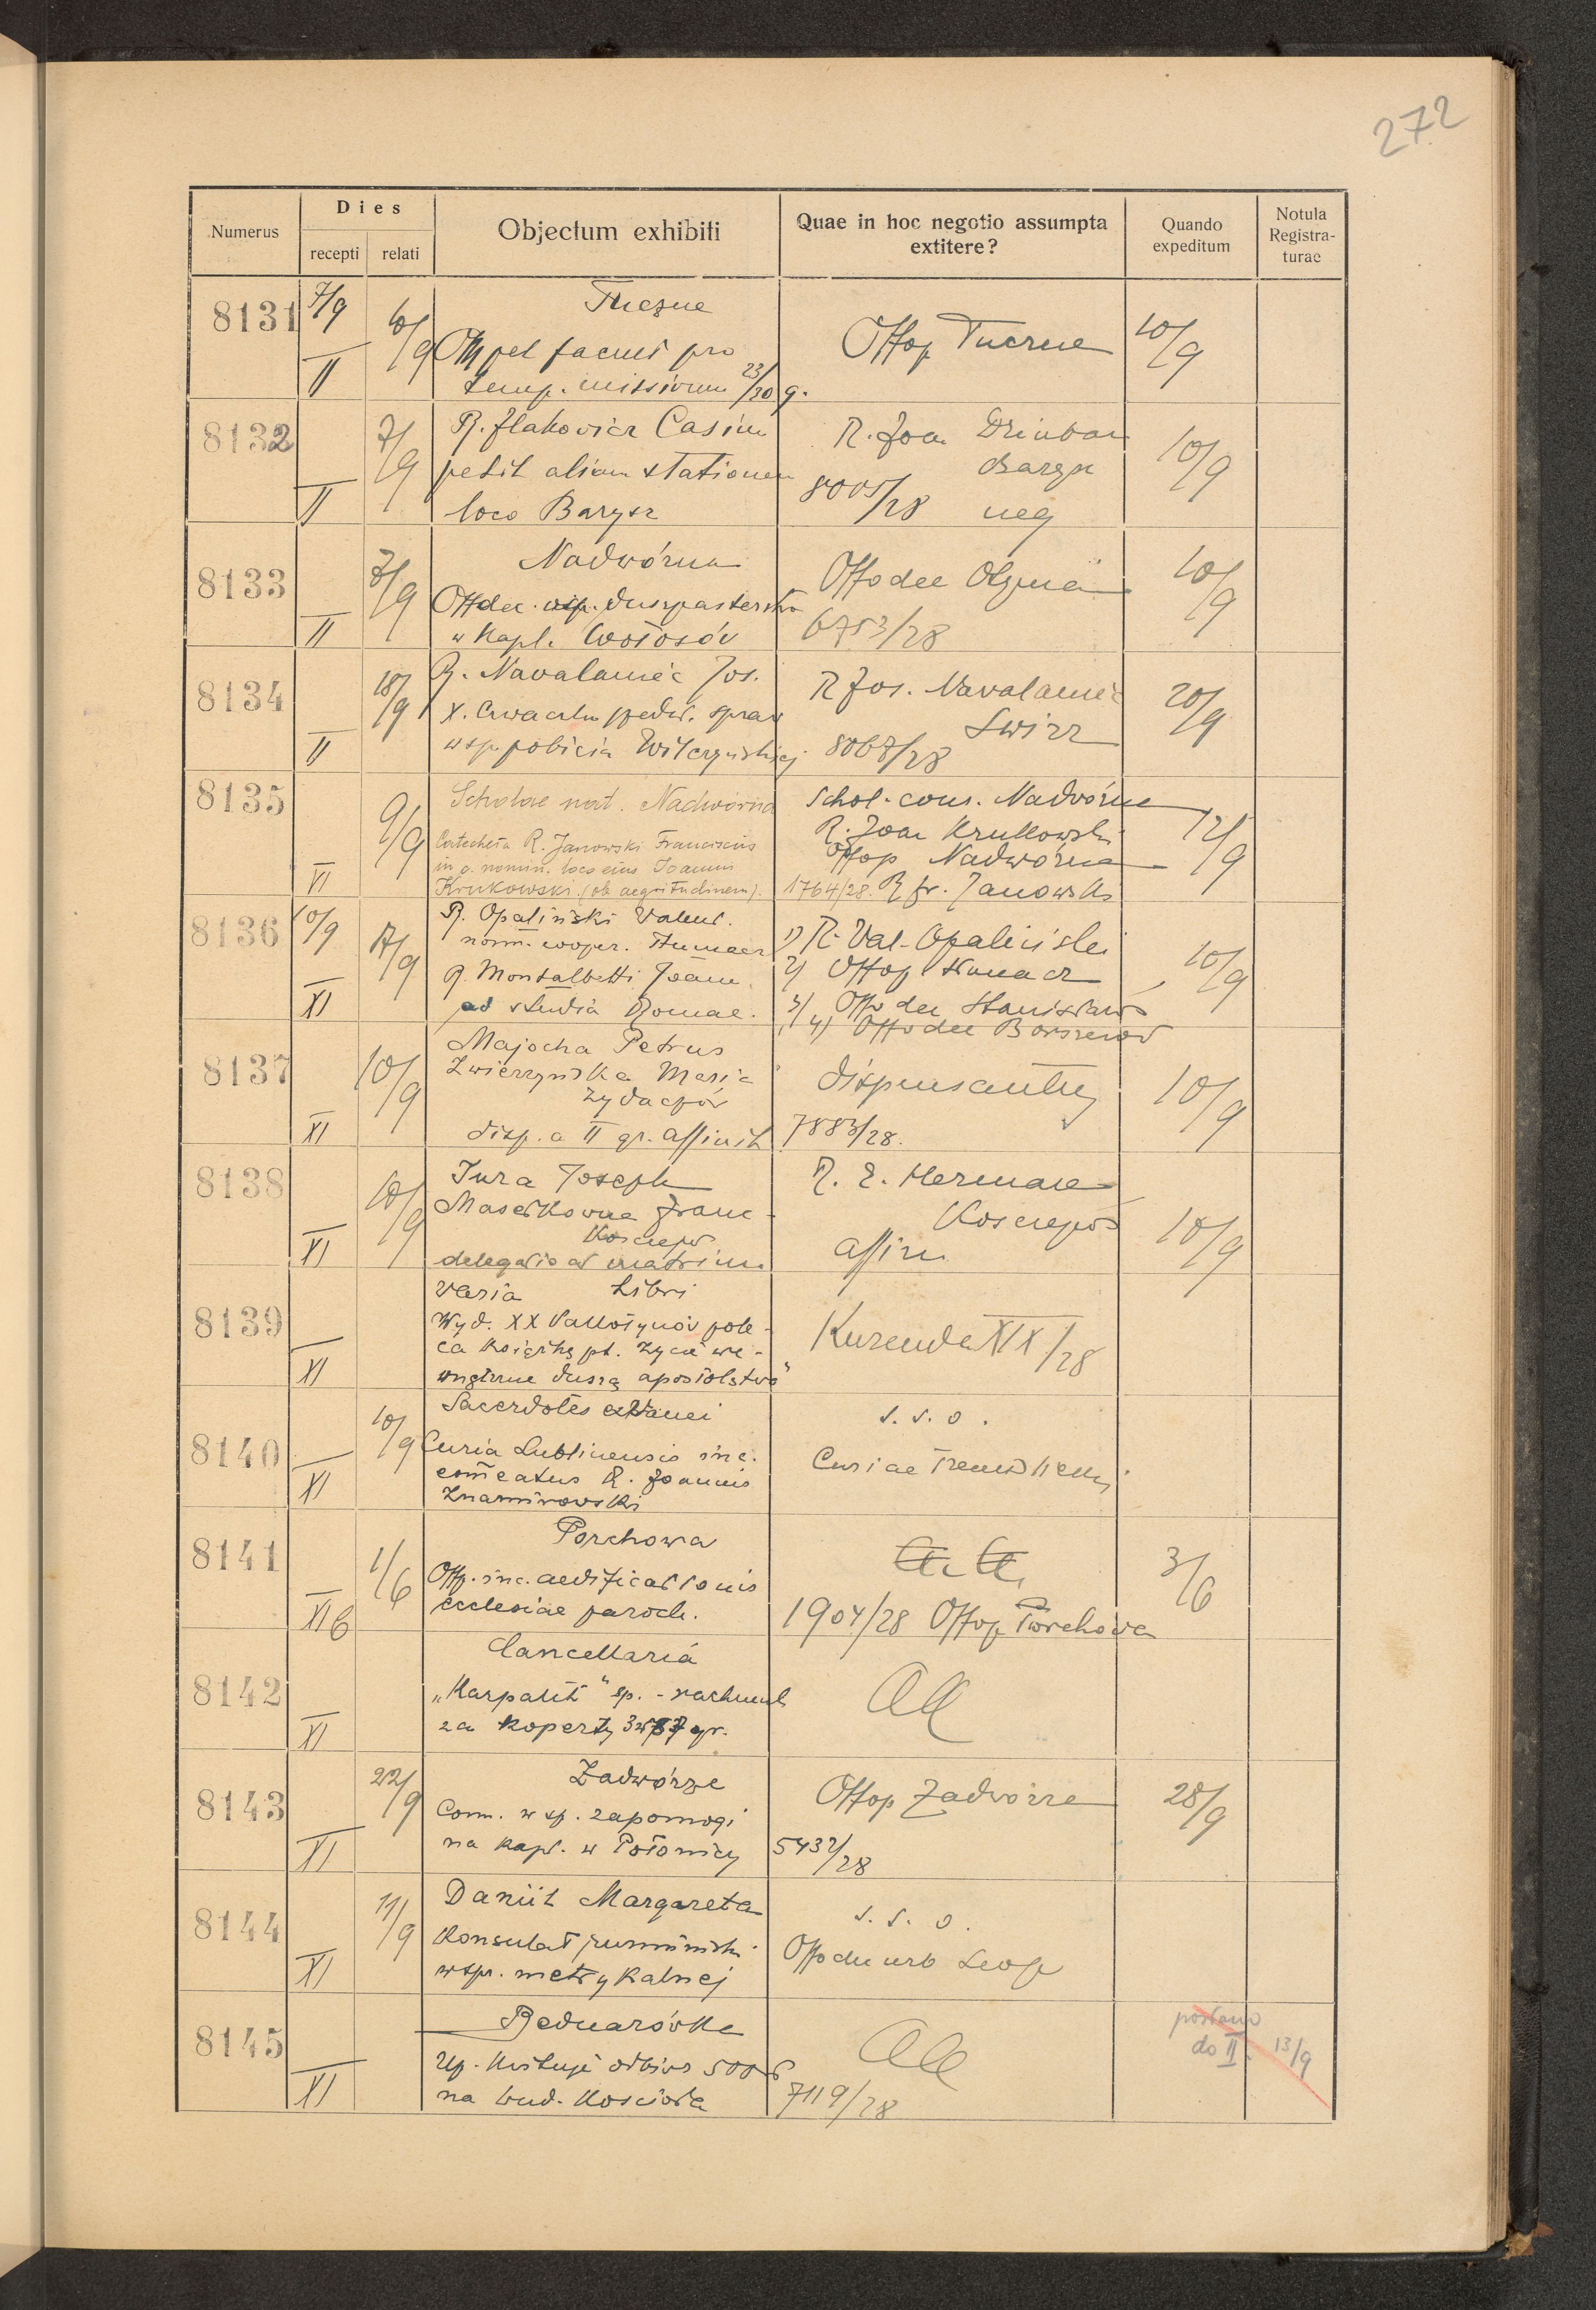 272
Numerus
Dies
recepti
relati
Objectum exhibiti
Quae in hoc negotio assumpta extitere?
Quando expeditum
Notula Registra-turae
8131 7/9 10/9 Tuczne
pet facult pro Offop Tuczne 10/9
II temp. missionum 23/30 9.
8132 7/9 R. Ilakovicz Casim R. Joa
petit aliam stationem Barysz 10/9
II loco Barysz 8005/28 neg
8133 7/9 Nadwórna Offodec 10/9
Offdec. wsp. duszpasterstwa
II w kapl. Wołosów 6753/28
8134 18/9 R. Navalaniec Jos. R Jos. Navalaniec 20/9
spraw Swirz
II wsp. pobicia Wilczyńskiej 8068/28
8135 9/9 Scholae nat. Nadwórna Schol. cons. Nadwórna 12/9
Catecheta R. Janowski Franciscus R. Joan Krukowski
in o. nomin. loco eius Joannis Offop Nadwórna
VI Krukowski (ob aegritudinem). 1764/28. R fr. Janowski
8136 10/9 17/9 R. Opaliński Valent. 1) R. Val. Opaliński
nom. cooper. Tłumacz 2) Offop Tłumacz 10/9
R. Montalbetti Joann. 3) Offo dec Stanisławów
XI ad studia Romae. 4) Offodec Borszczów
8137 10/9 Majocha Petrus
Zwierzyńska Maria dispensantur 10/9
Żydaczów
XI disp. a II gr. affinit 7883/28.
8138 10/9 Jura Joseph R. E. Herman
Masełkowna Franc. Kosciejów 10/9
Kosciejów
XI delegatio ad matrim affirm
8139 Varia Libri
Wyd. XX Pallotynów pole- Kurenda XIX/28
ca książkę pt. Życie we-
XI wnętrzne duszą apostolstwa"
8140 10/9 Sacerdotes extranei s. s. o.
Curia Lublinensis inc.
XI comeatus R. Joannis Curiae
Znamirowski
8141 1/6 Porchowa 3/6
Offp. inc. aedificationis
XI6 ecclesiae paroch. 1904/28 Offop Porchowa
8142 Cancellaria
„Karpalit" sp. - rachunek
XI za koperty
8143 22/9 Zadwórze Offop Zadwórze 28/9
Com. w sp. zapomogi
XI na kapl. w Połonicy 5432/28
8144 11/9 Daniił Margareta s. s. o.
Konsulat rumuński Offodec urb Leop
XI wspr. metrykalnej
8145 Bednarówka posłano
do II. 13/9
Up. kwituje odbiór 500 zł
XI na bud. kościoła 7119/28